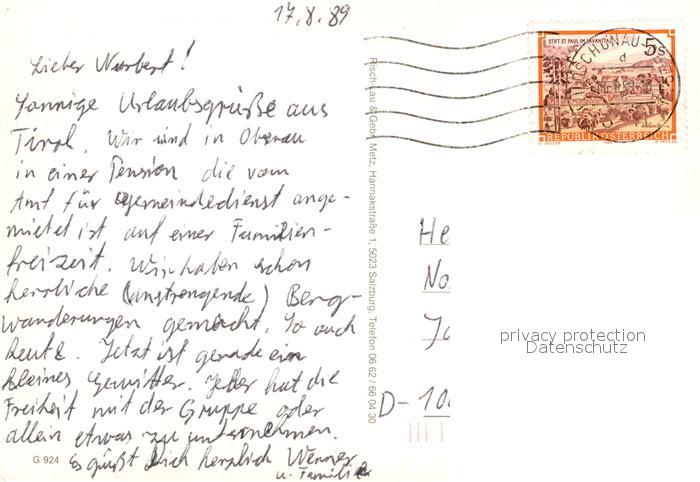 17.8.89
Lieber Norbert!
Sonnige Urlaubsgrüße aus
Tirol. Wir sind in Oberau
in einer Pension die vom
Amt für Gemeindedienst ange-
mietet ist auf einer Familien-
freizeit. Wir haben schon
herrliche (anstrengende) Berg-
wanderungen gemacht. So auch
heute. Jetzt ist gerade ein
kleines Gewitter. Jeder hat die
Freiheit mit der Gruppe oder
allein etwas zu unternehmen.
Es grüßt Dich herzlich Werner
u. Familie
G 924
Risch-Lau & Gebr. Metz, Hannakstraße 1, 5023 Salzburg, Telefon 06 62 / 66 04 30
STIFT ST. PAUL IM LAVANTTAL
5 S
REPUBLIK ÖSTERREICH
He
No
D-10
privacy protection
Datenschutz